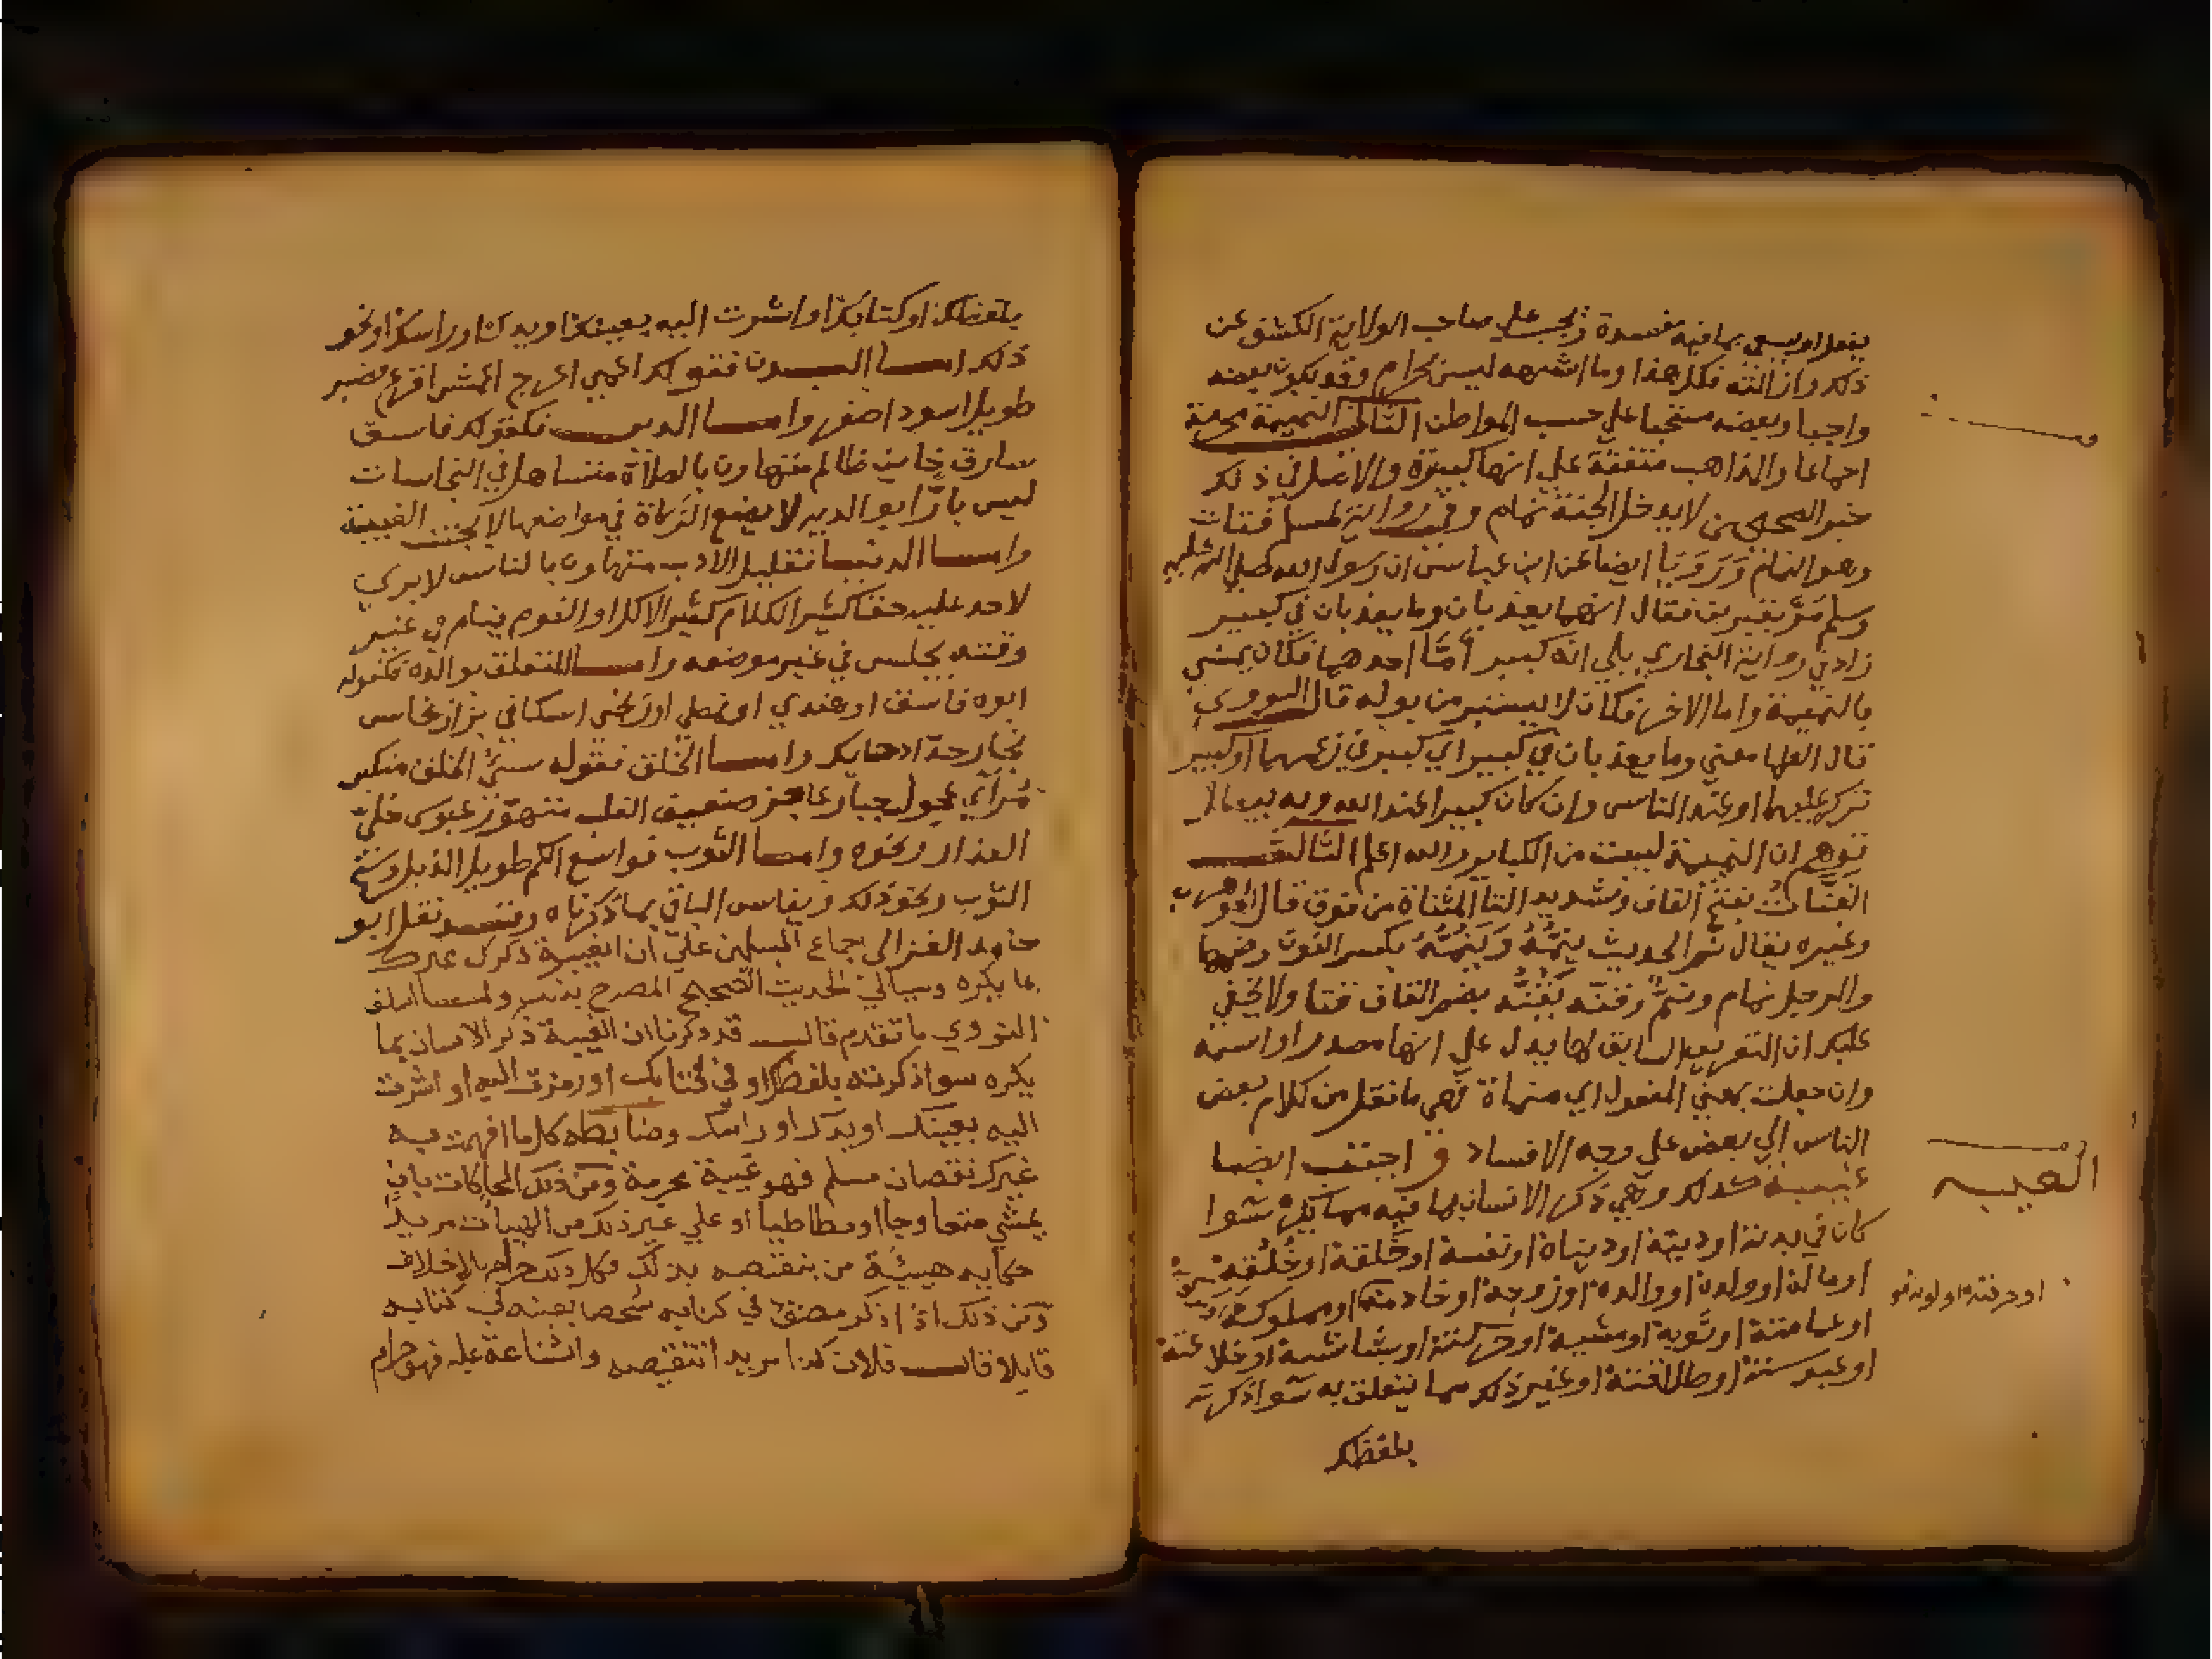 يفعل او يسعي بما فيه مفسدة ويجب علي صاحب الولاية الكشف عن
ذلك وازالته فكل هذا وما اشبهه ليس بحرام وقد يكون بعضه
واجبا وبعضه مستحبا علي حسب المواطن الثاني النميمة محرمة
اجماعا والمذاهب متفقة علي انها كبيرة والاصل في ذلك
خبر الصحيحين لا يدخل الجنة نمام وفي رواية لمسلم قتات
وهو النمام ورويا ايضا عن ابن عباس ان رسول الله صلي الله عليه
وسلم مر بقبرين فقال انهما يعذبان وما يعذبان في كبير
زاد في رواية البخاري بلي انه كبير أمّا احدهما فكان يمشي
بالنميمة واما الاخر فكان لا يستبر من بوله قال النووي
قال العلما معني وما يعذبان في كبير اي كبير في زعمهما او كبير
تركه عليهما او عند الناس وان كان كبيرا عند الله وبه يبطل
توهم ان النميمة ليست من الكباير والله اعلم الثالث
القتّات بفتح القاف وتشديد التا المثناة من فوق قال الجوهري
وغيره يقال نمّ الحديث ينِمُّه وينُمُّه بكسر النون وضمها
والرجل نمام ونمّ وقتّه يقُتُّه بضم القاف قتا ولا يخفي
عليك ان التعريف السابق لها يدل علي انها مصدر او اسمه
وان جعلت بمعني المفعول اي منماة فهي ما نقل من كلام بعض
الناس الي بعض علي وجه الافساد و اجتنب ايضا
غيبة كذلك وهي ذكر الانسان بما فيه مما يكره سوا
كان في بدنه او دينه او دنياه او نفسه او خَلقه او خُلُقه
او ماله او ولده او والده او زوجه او خادمه او مملوكه
او عمامته او ثوبه او مشيه او حركته او بشاشته او خلاعته
او عبوسته او طلاقته او غير ذلك مما يتعلق به سوا ذكرته
بلفظك
الغيبه
او حرفته او لونه
بلفظك او كتابك او اشرت اليه بعينك او يدك او راسك او نحو
ذلك امـا البدن فقولك اعمي اعرج اعمش اقرع قصير
طويل اسود اصفر وامـا الدين فكقولك فاسق
سارق خاين ظالم متهاون بالصلاة متساهل في النجاسات
ليس بارّا بوالديه لا يضع الزكاة في مواضعها لا يجتنب الغيبة
وامـا الدنيا فقليل الادب متهاون بالناس لا يري
لاحد عليه حقا كثير الكلام كثير الاكل او النوم ينام في غير
وقته يجلس في غير موضعه وامـا المتعلق بوالده فكقوله
ابوه فاسق او هندي او نبطي او زنجي اسكافي بزاز نخاس
نجار حداد حايك وامـا الخلق فقوله سيّئ الخلق متكبر
مُرآي عجول جبار عاجز ضعيف القلب متهوّر عبوس خليع
العذار ونحوه وامـا الثوب فواسع الكم طويل الذيل وسخ
الثوب ونحو ذلك ويقاس الباقي بما ذكرناه وقد نقل ابو
حامد الغزالي اجماع المسلمين علي ان الغيبة ذكرك غيرك
بما يكره وسياتي الحديث الصحيح المصرح بذلك
النووي ما تقدم قال قد ذكرنا ان الغيبة ذكر الانسان بما
يكره سوا ذكرته بلفظك او في كتابك او رمزت اليه او اشرت
اليه بعينك او يدك او راسك وضابطه كل ما افهمت به
غيرك نقصان مسلم فهو غيبة محرمة ومن ذلك المحاكات بان
يمشي متعاوجا او مطاطيا او علي غير ذلك من الهيات مريدا
حكايه هيئة من ينتقصه بذلك فكل ذلك حرام بلا خلاف
ومن ذلك اذا ذكر مصنف في كتابه شخصا بعينه في كتابه
قايلا قال فلان كذا مريدا تنقيصه والشناعة عليه فهو حرام